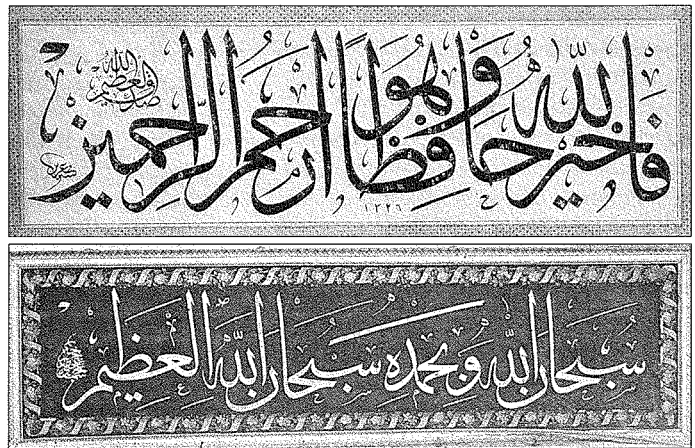 فالله خير حافظا وهو أرحم الراحمين
صدق الله العظيم
١٣٢٦
سبحان الله وبحمده سبحان الله العظيم